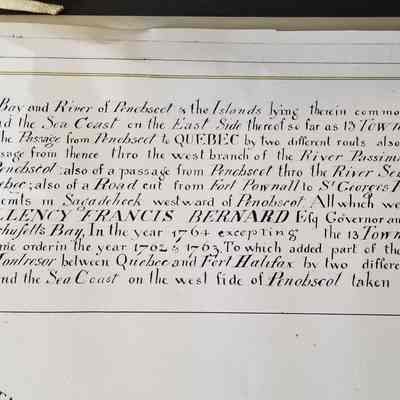 Bay and River of Penobscot & the Islands lying therein commo
nd the Sea Coast on the East Side thereof so far as 13 Town
he Passage from Penobscot to QUEBEC by two different routs also
sage from thence thro the west branch of the River Passim
Penobscot: also of a passage from Penobscot thro the River Se
ebec; also of a Road cut from Fort Pownall to St Georges F
ents in Sagadehock westward of Penobscot All which we
LLENCY FRANCIS BERNARD Esq Governor an
chusetts Bay, In the year 1764 excepting the 13 Town
me order in the year 1762 & 1763 To which added part of the
Montresor between Quebec and Fort Halifax by two differe
nd the Sea Coast on the west side of Penobscot taken